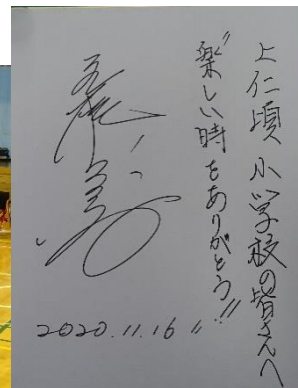 上仁頃小学校の皆さんへ
"楽しい時をありがとう!!"
2020.11.16